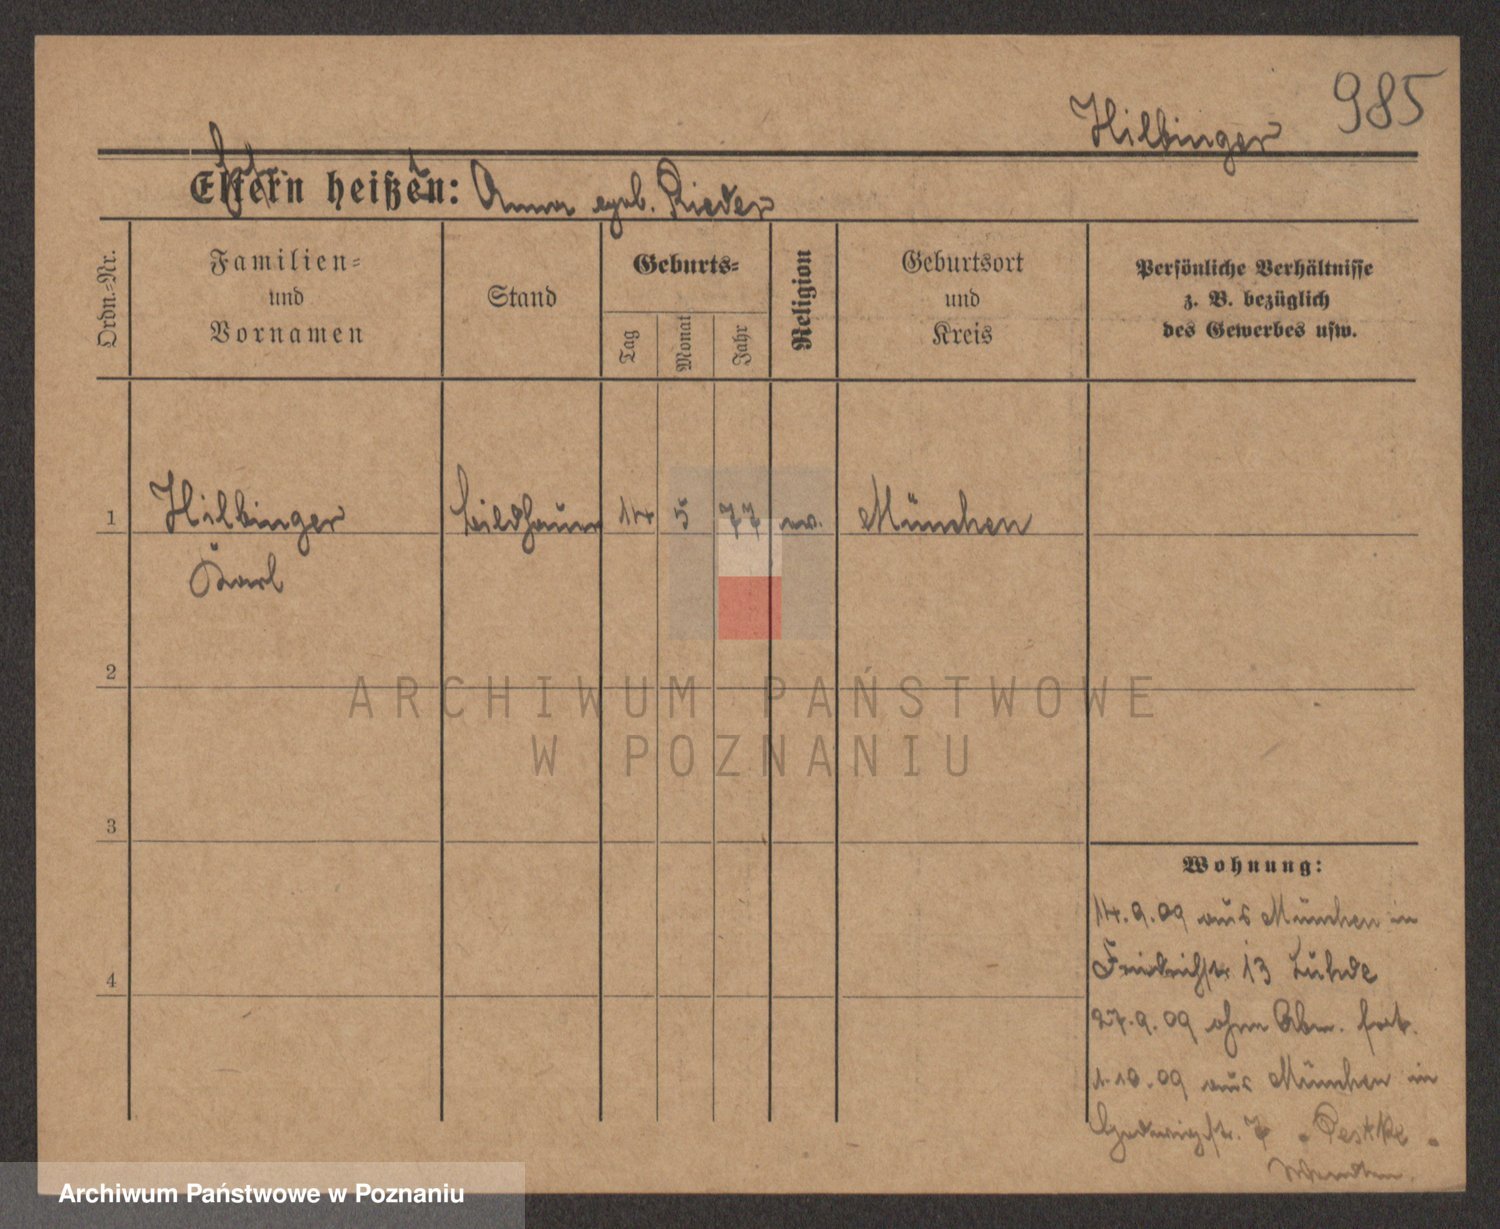 Hilbinger 985
Eltern heißen: Anna geb. Rieder
Ordn.-Nr.
Familien-
und
Vornamen
Stand
Geburts-
Tag
Monat
Jahr
Religion
Geburtsort
und
Kreis
Persönliche Verhältnisse
z. B. bezüglich
des Gewerbes usw.
1 Hilbinger Bildhauer 14 5 77 ev. München
Karl
2
3
4
ARCHIWUM PAŃSTWOWE
W POZNANIU
Wohnung:
14.9.09 aus München in
Friedrichstr. 13
27.9.09 ohne Abm. fort.
1.10.09 aus München in
Hedwigstr. 7 - Pestke -
Archiwum Państwowe w Poznaniu